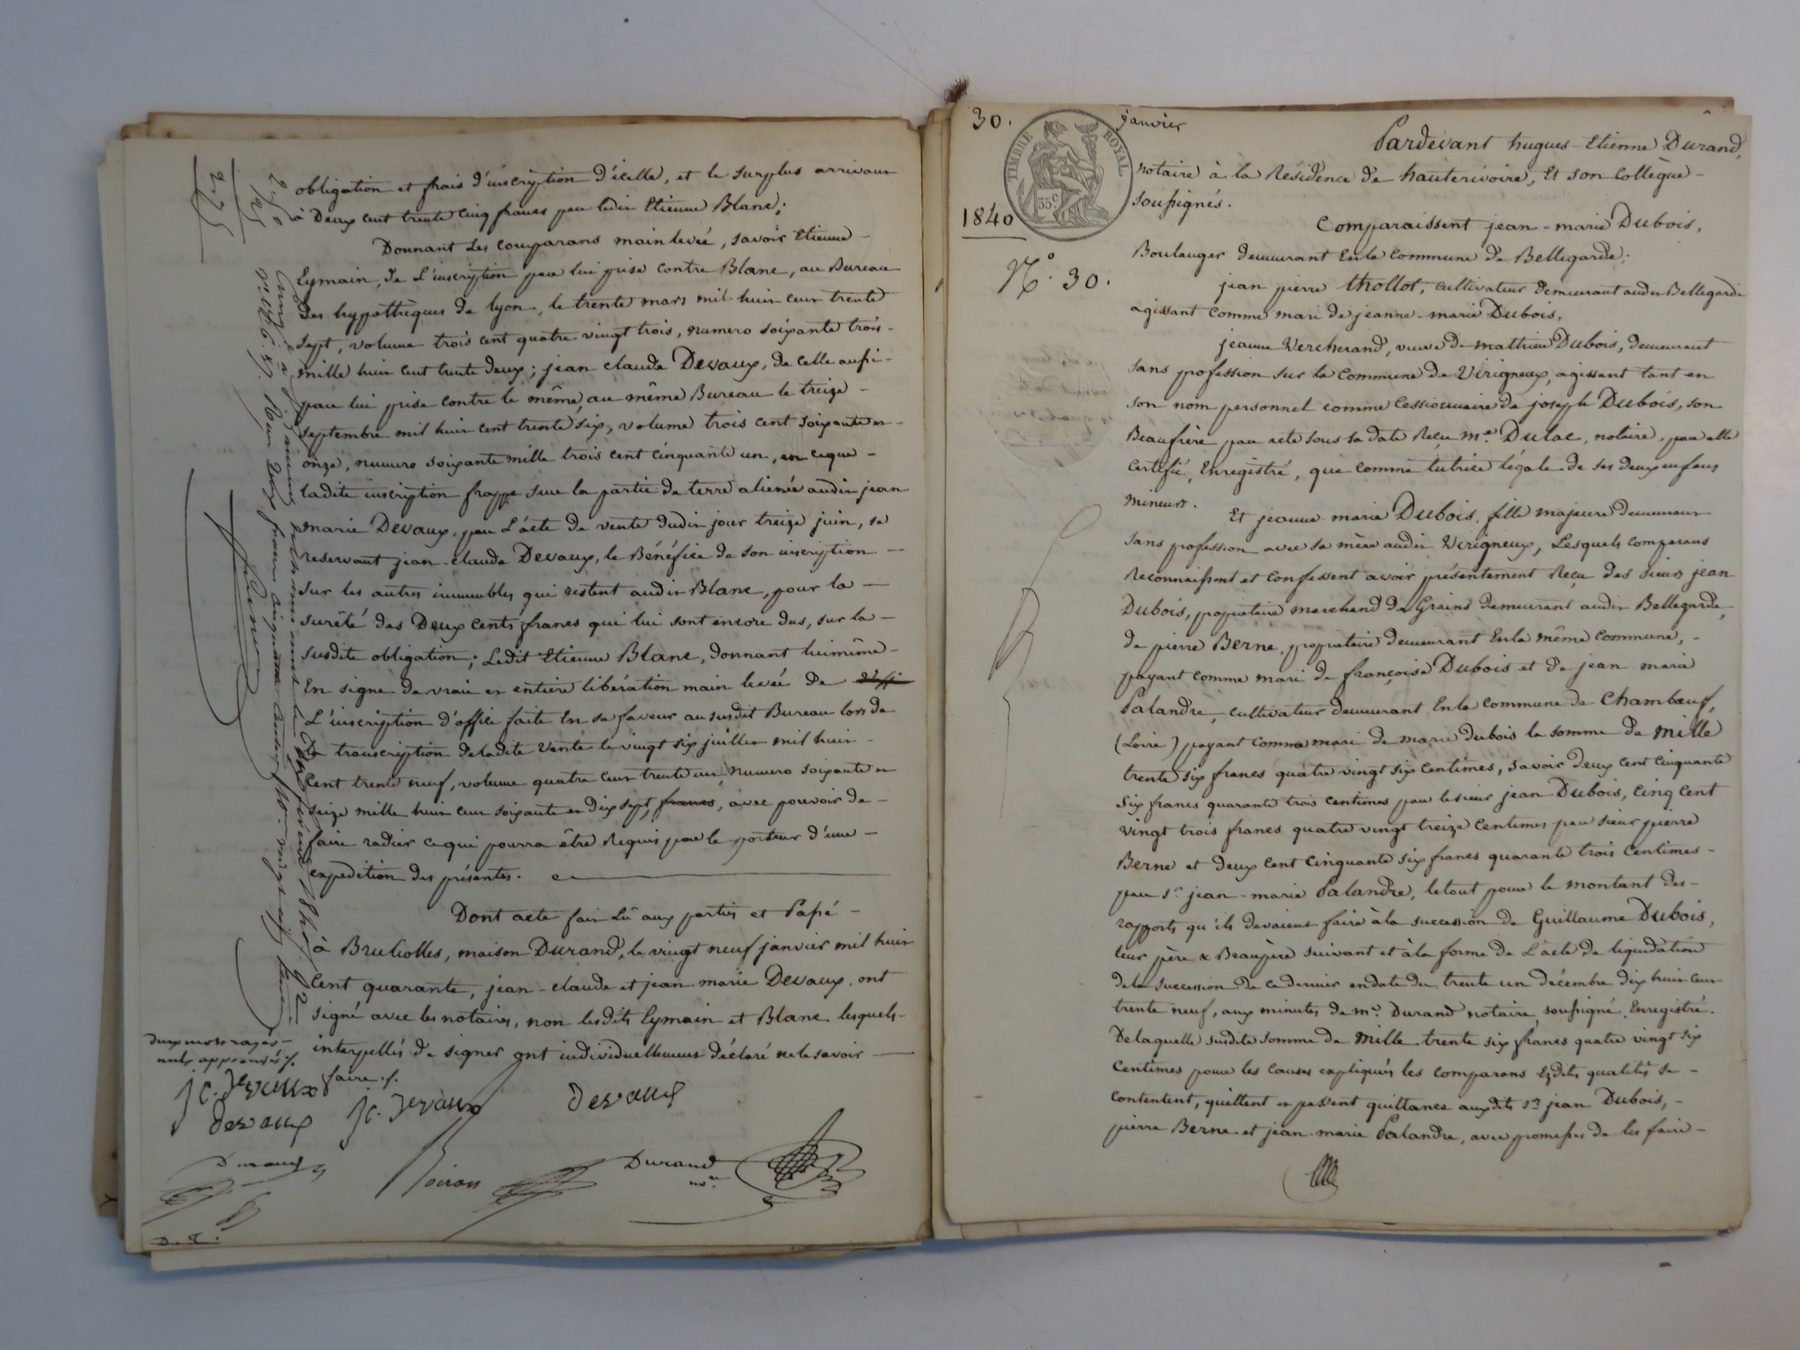 obligation et frais d'inscription d'icelle, et le surplus arrivant
à Deux cent trente cinq francs par ledit Etienne Blanc;
Donnant les comparans mainlevée, savoir Etienne
Eymain, de L'inscription par lui prise contre Blanc, au Bureau
des hypothèques de lyon, le trente mars mil huit cent trente
sept, volume trois cent quatre vingt trois, numero soixante trois
mille huit cent trente deux; jean claude Devaux, de celle aussi
par lui prise contre le même, au même Bureau le treize
septembre mil huit cent trente six, volume trois cent soixante et
onze, numero soixante mille trois cent cinquante un, en ce que
ladite inscription frappe sur la partie de terre alienée audit jean
marie Devaux, par L'acte de vente dudit jour treize juin, se
reservant jean-claude Devaux, le Bénéfice de son inscription
sur les autres immeubles qui restent audit Blanc, pour la
sureté des Deux cents francs qui lui sont encore dus, sur la
susdite obligation; Ledit Etienne Blanc, donnant lui même
En signe de vraie et entière libération main levée de
L'inscription d'office faite En sa faveur au susdit Bureau lors de
la transcription de ladite vente le vingt six juillet mil huit
cent trente neuf, volume quatre cent trente un, numero soixante et
seize mille huit cent soixante et dix sept, francs, avec pouvoir de
faire radier ce qui pourra être Requis par le porteur d'une
expedition des présentes.
Dont acte fait Lû aux parties et Passé
à Brulioles, maison Durand, le vingt neuf janvier mil huit
cent quarante, jean-claude et jean marie Devaux, ont
signé avec les notaires, non lesdits Eymain et Blanc lesquels
interpellés de signer ont individuellement déclaré ne le savoir
faire./.
deux mots rayés
nuls approuvés ./.
J C. Devaux
devaux
J C. Devaux
devaux
Durand
Coiron
Durand
D. C.
2.20
2.25
30.
janvier
TIMBRE ROYAL
35c
1840
N°. 30.
Pardevant hugues-Etienne Durand,
notaire à la Résidence de hauterivoire, Et son Collègue
soussignés.
Comparaissent jean-marie Dubois,
Boulanger demeurant En la commune de Bellegarde;
jean pierre thollot, cultivateur demeurant audit Bellegarde
agissant Comme mari de jeanne-marie Dubois,
jeanne Vercherand, veuve de mathieu Dubois, demeurant
sans profession sur la Commune de Virigneux, agissant tant en
son nom personnel comme Cessionnaire de joseph Dubois, son
Beaufrère par acte sous sa date Reçu me. Dulac, notaire, par elle
certifié, Enregistré, que comme tutrice légale de ses deux enfans
mineurs.
Et jeanne marie Dubois, fille majeure demeurant
sans profession avec sa mère audit Virigneux, Lesquels comparans
Reconnaissent et Confessent avoir présentement Reçu des sieurs jean
Dubois, propriétaire marchand de Grains demeurant audit Bellegarde,
de pierre Berne, propriétaire demeurant En la même Commune,
payant comme mari de françoise Dubois et de jean marie
Palandre, cultivateur demeurant En la Commune de Chambœuf,
(Loire) payant Comme mari de marie dubois la somme de mille
trente six francs quatre vingt six centimes, savoir deux cent cinquante
six francs quarante trois centimes par le sieur jean Dubois, cinq cent
vingt trois francs quatre vingt treize centimes par sieur pierre
Berne et deux cent Cinquante six francs quarante trois Centimes
par sr jean-marie Palandre, le tout pour le montant des
rapports qu'ils devaient faire à la succession de Guillaume Dubois,
leur père & Beaupère suivant et à la forme de L'acte de liquidation
de la succession de ce dernier en date du trente un décembre dix huit cent
trente neuf, aux minutes de me. Durand notaire soussigné, Enregistré.
De laquelle susdite somme de Mille trente six francs quatre vingt six
Centimes pour les causes expliquées les comparans esdites qualités se
Contentent, quittent et passent quittance auxdits srs jean Dubois,
pierre Berne et jean-marie Palandre, avec promesses de les faire